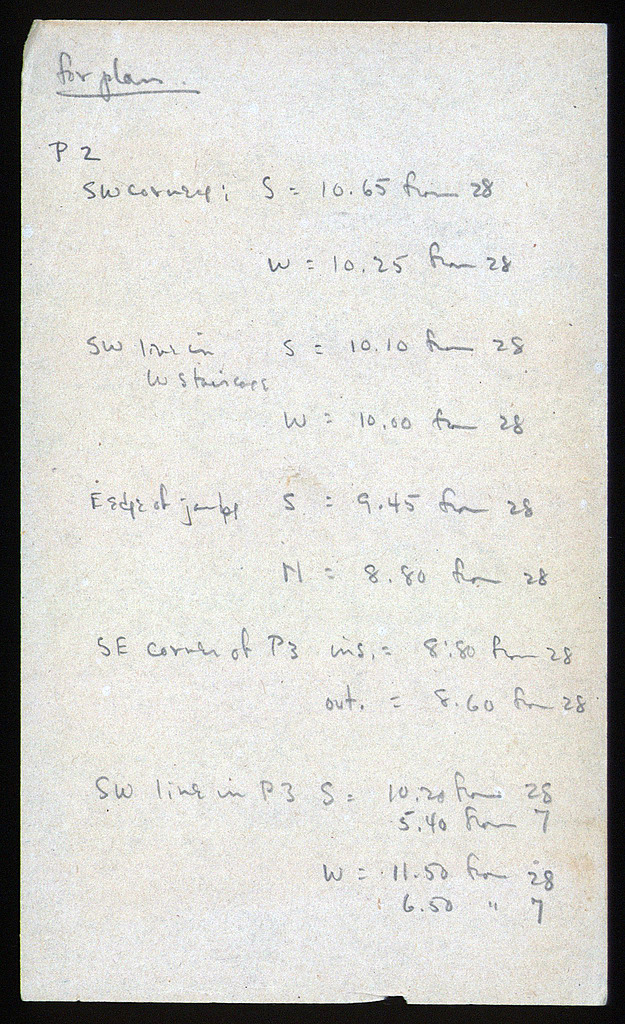 for plan.
P 2
SW corner; S = 10.65 from 28
W = 10.25 from 28
SW line in S = 10.10 from 28
W staircase
W = 10.00 from 28
E edge of jamb S = 9.45 from 28
N = 8.80 from 28
SE corner of P3 ins. = 8.80 from 28
out. = 8.60 from 28
SW line in P3 S = 10.20 from 28
5.40 from 7
W = 11.50 from 28
6.50 " 7